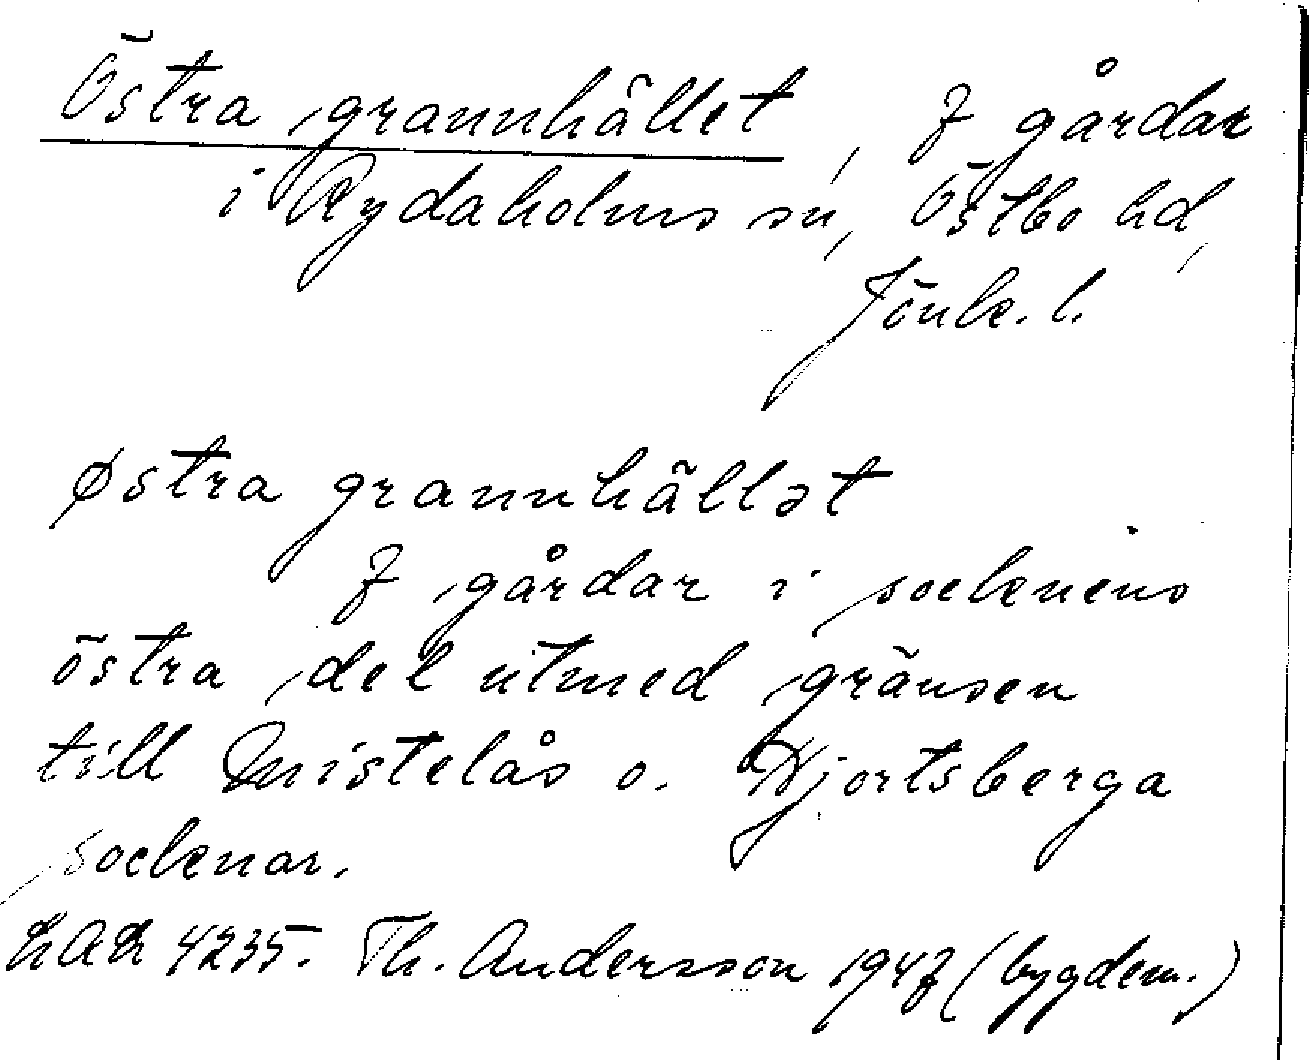 Östra grannhället, 7 gårdar
i Rydaholms sn, Östbo hd,
Jönk. l.
østra grannhällət
7 gårdar i socknens
östra del utmed gränsen
till Mistelås o. Hjortsberga
socknar.
LAL 4235. Th. Andersson 1947 (bygdem.)